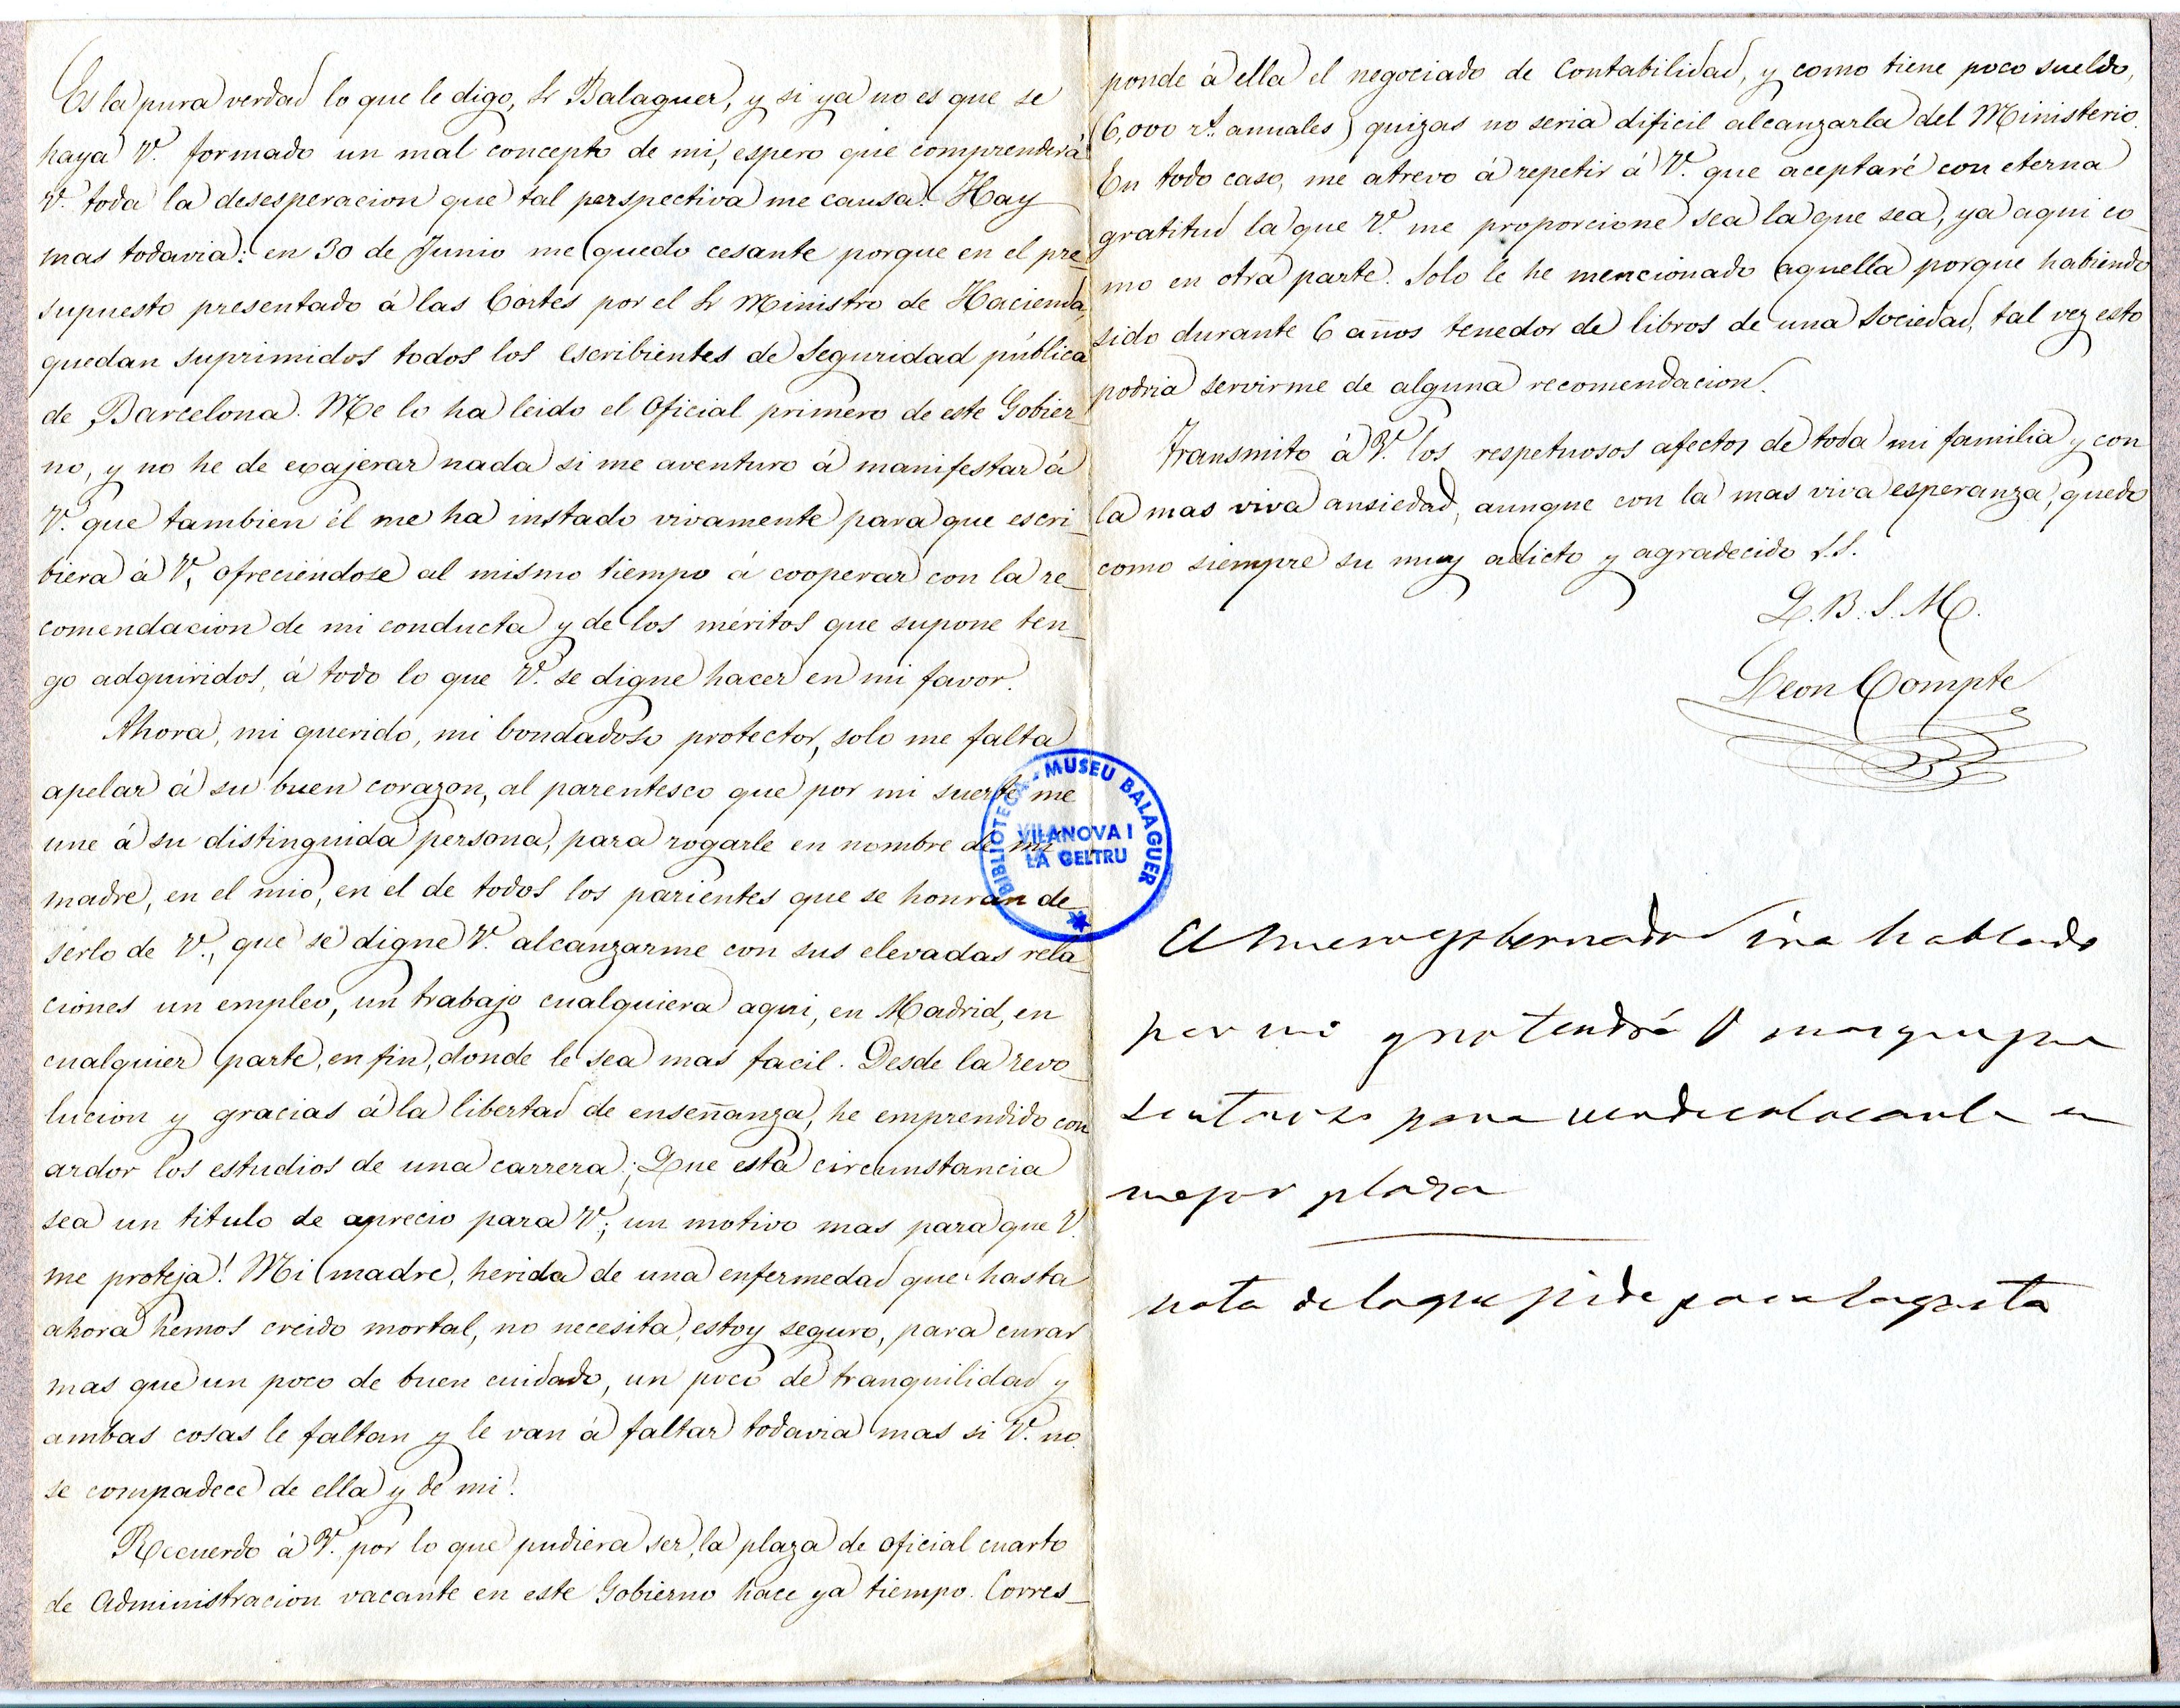 Es la pura verdad lo que le digo, Sr Balaguer, y si ya no es que se
haya V. formado un mal concepto de mi, espero que comprenderá
V. toda la desesperacion que tal perspectiva me causa. Hay
mas todavia: en 30 de Junio me quedo cesante porque en el pre-
supuesto presentado á las Córtes por el Sr Ministro de Hacienda,
quedan suprimidos todos los escribientes de Seguridad pública
de Barcelona. Me lo ha leido el Oficial primero de este Gobier-
no, y no he de exajerar nada si me aventuro á manifestar á
V. que tambien él me ha instado vivamente para que escri-
biera á V, ofreciéndose al mismo tiempo á cooperar con la re-
comendacion de mi conducta y de los méritos que supone ten-
go adquiridos, á todo lo que V. se digne hacer en mi favor.
Ahora, mi querido, mi bondadoso protector, solo me falta
apelar á su buen corazon, al parentesco que por mi suerte me
une á su distinguida persona, para rogarle en nombre de mi
madre, en el mio, en el de todos los parientes que se honran de
serlo de V., que se digne V. alcanzarme con sus elevadas rela-
ciones un empleo, un trabajo cualquiera aqui, en Madrid, en
cualquier parte, en fin, donde le sea mas facil. Desde la revo-
lucion y gracias á la libertad de enseñanza, he emprendido con
ardor los estudios de una carrera; Que esta circumstancia
sea un titulo de aprecio para V; un motivo mas para que V.
me proteja! Mi madre, herida de una enfermedad que hasta
ahora hemos creido mortal, no necesita, estoy seguro, para curar
mas que un poco de buen cuidado, un poco de tranquilidad y
ambas cosas le faltan y le van á faltar todavia mas si V. no
se compadece de ella y de mi!
Recuerdo á V. por lo que pudiera ser, la plaza de oficial cuarto
de Administracion vacante en este Gobierno hace ya tiempo. Corres-
ponde á ella el negociado de Contabilidad, y como tiene poco sueldo,
(6,000 rs. anuales) quizas no seria dificil alcanzarla del Ministerio.
En todo caso, me atrevo á repetir á V. que aceptaré con eterna
gratitud la que V. me proporcione sea la que sea, ya aqui co-
mo en otra parte. Solo le he mencionado aquella porque habiendo
sido durante 6 años tenedor de libros de una Sociedad, tal vez esto
podria servirme de alguna recomendacion.
Transmito á V. los respetuosos afectos de toda mi familia y con
la mas viva ansiedad, aunque con la mas viva esperanza, quedo
como siempre su muy adicto y agradecido S.S.
Q.B.S.M.
Leon Compte
BIBLIOTECA-MUSEU BALAGUER
VILANOVA I
LA GELTRU
El nuevo gobernador ira hablado
por mi y no tendrá V mas que pre
sentarse para
mejor plaza
nota de lo que pide